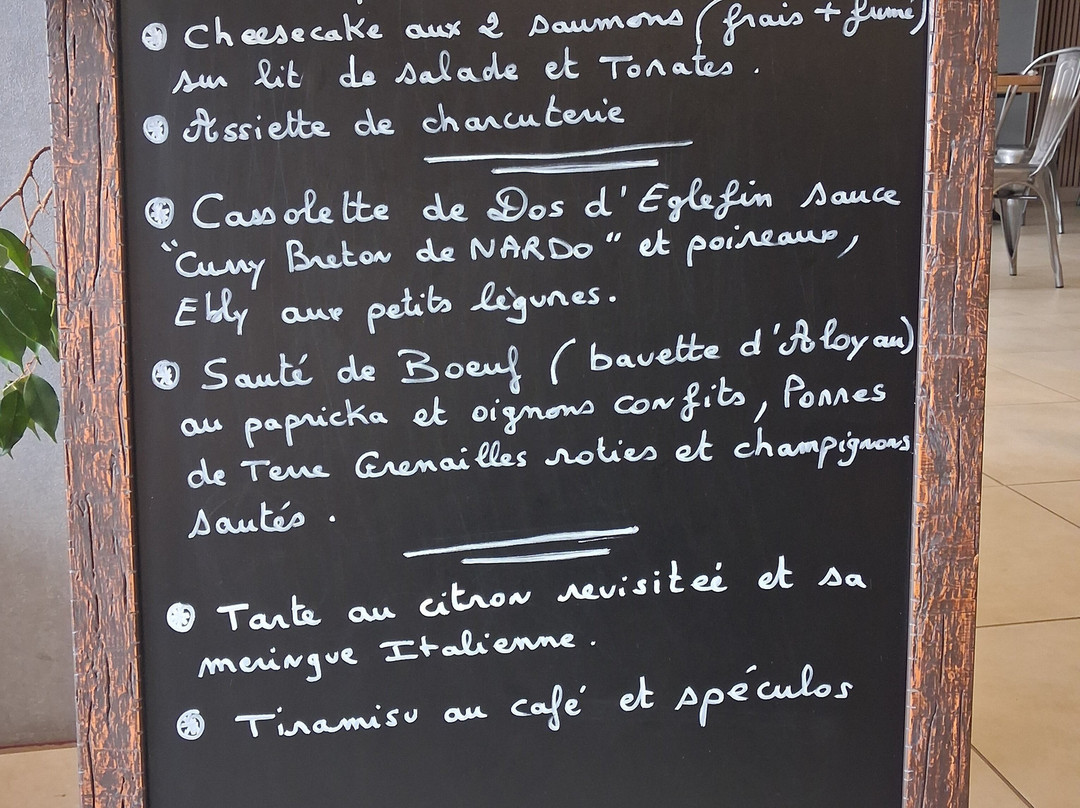 Cheesecake aux 2 saumons (frais + fumé)
sur lit de salade et Tomates.
Assiette de charcuterie
Cassolette de Dos d'Eglefin sauce
"Curry Breton de NARDO" et poireaux,
Ebly aux petits légumes.
Sauté de Boeuf (bavette d'Aloyau)
au papricka et oignons confits, Pommes
de Terre Grenailles roties et champignons
sautés.
Tarte au citron revisiteé et sa
meringue Italienne.
Tiramisu au café et spéculos